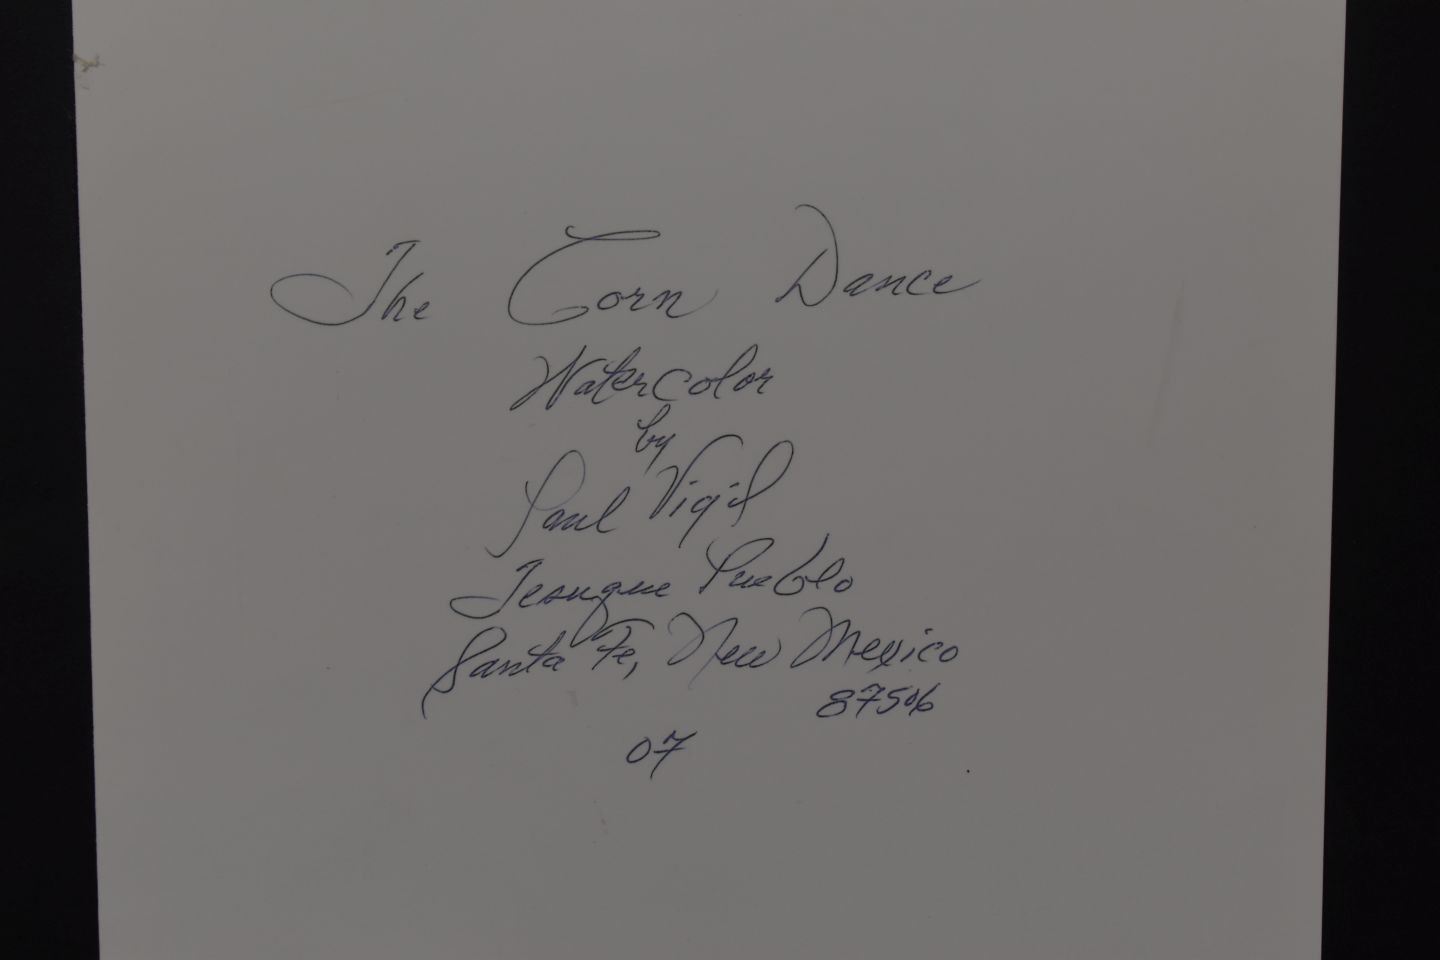 The Corn Dance
Watercolor
by
Paul Vigil
Tesuque Pueblo
Santa Fe, New Mexico
87506
07